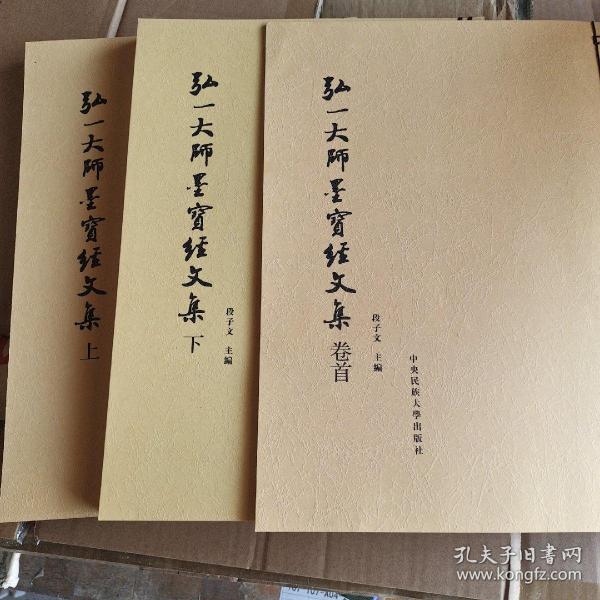 弘一大師墨寶經文集
上
弘一大師墨寶經文集
下
段子文 主編
弘一大師墨寶經文集
卷首
段子文 主編
中央民族大學出版社
孔夫子旧书网
www.kongfz.com